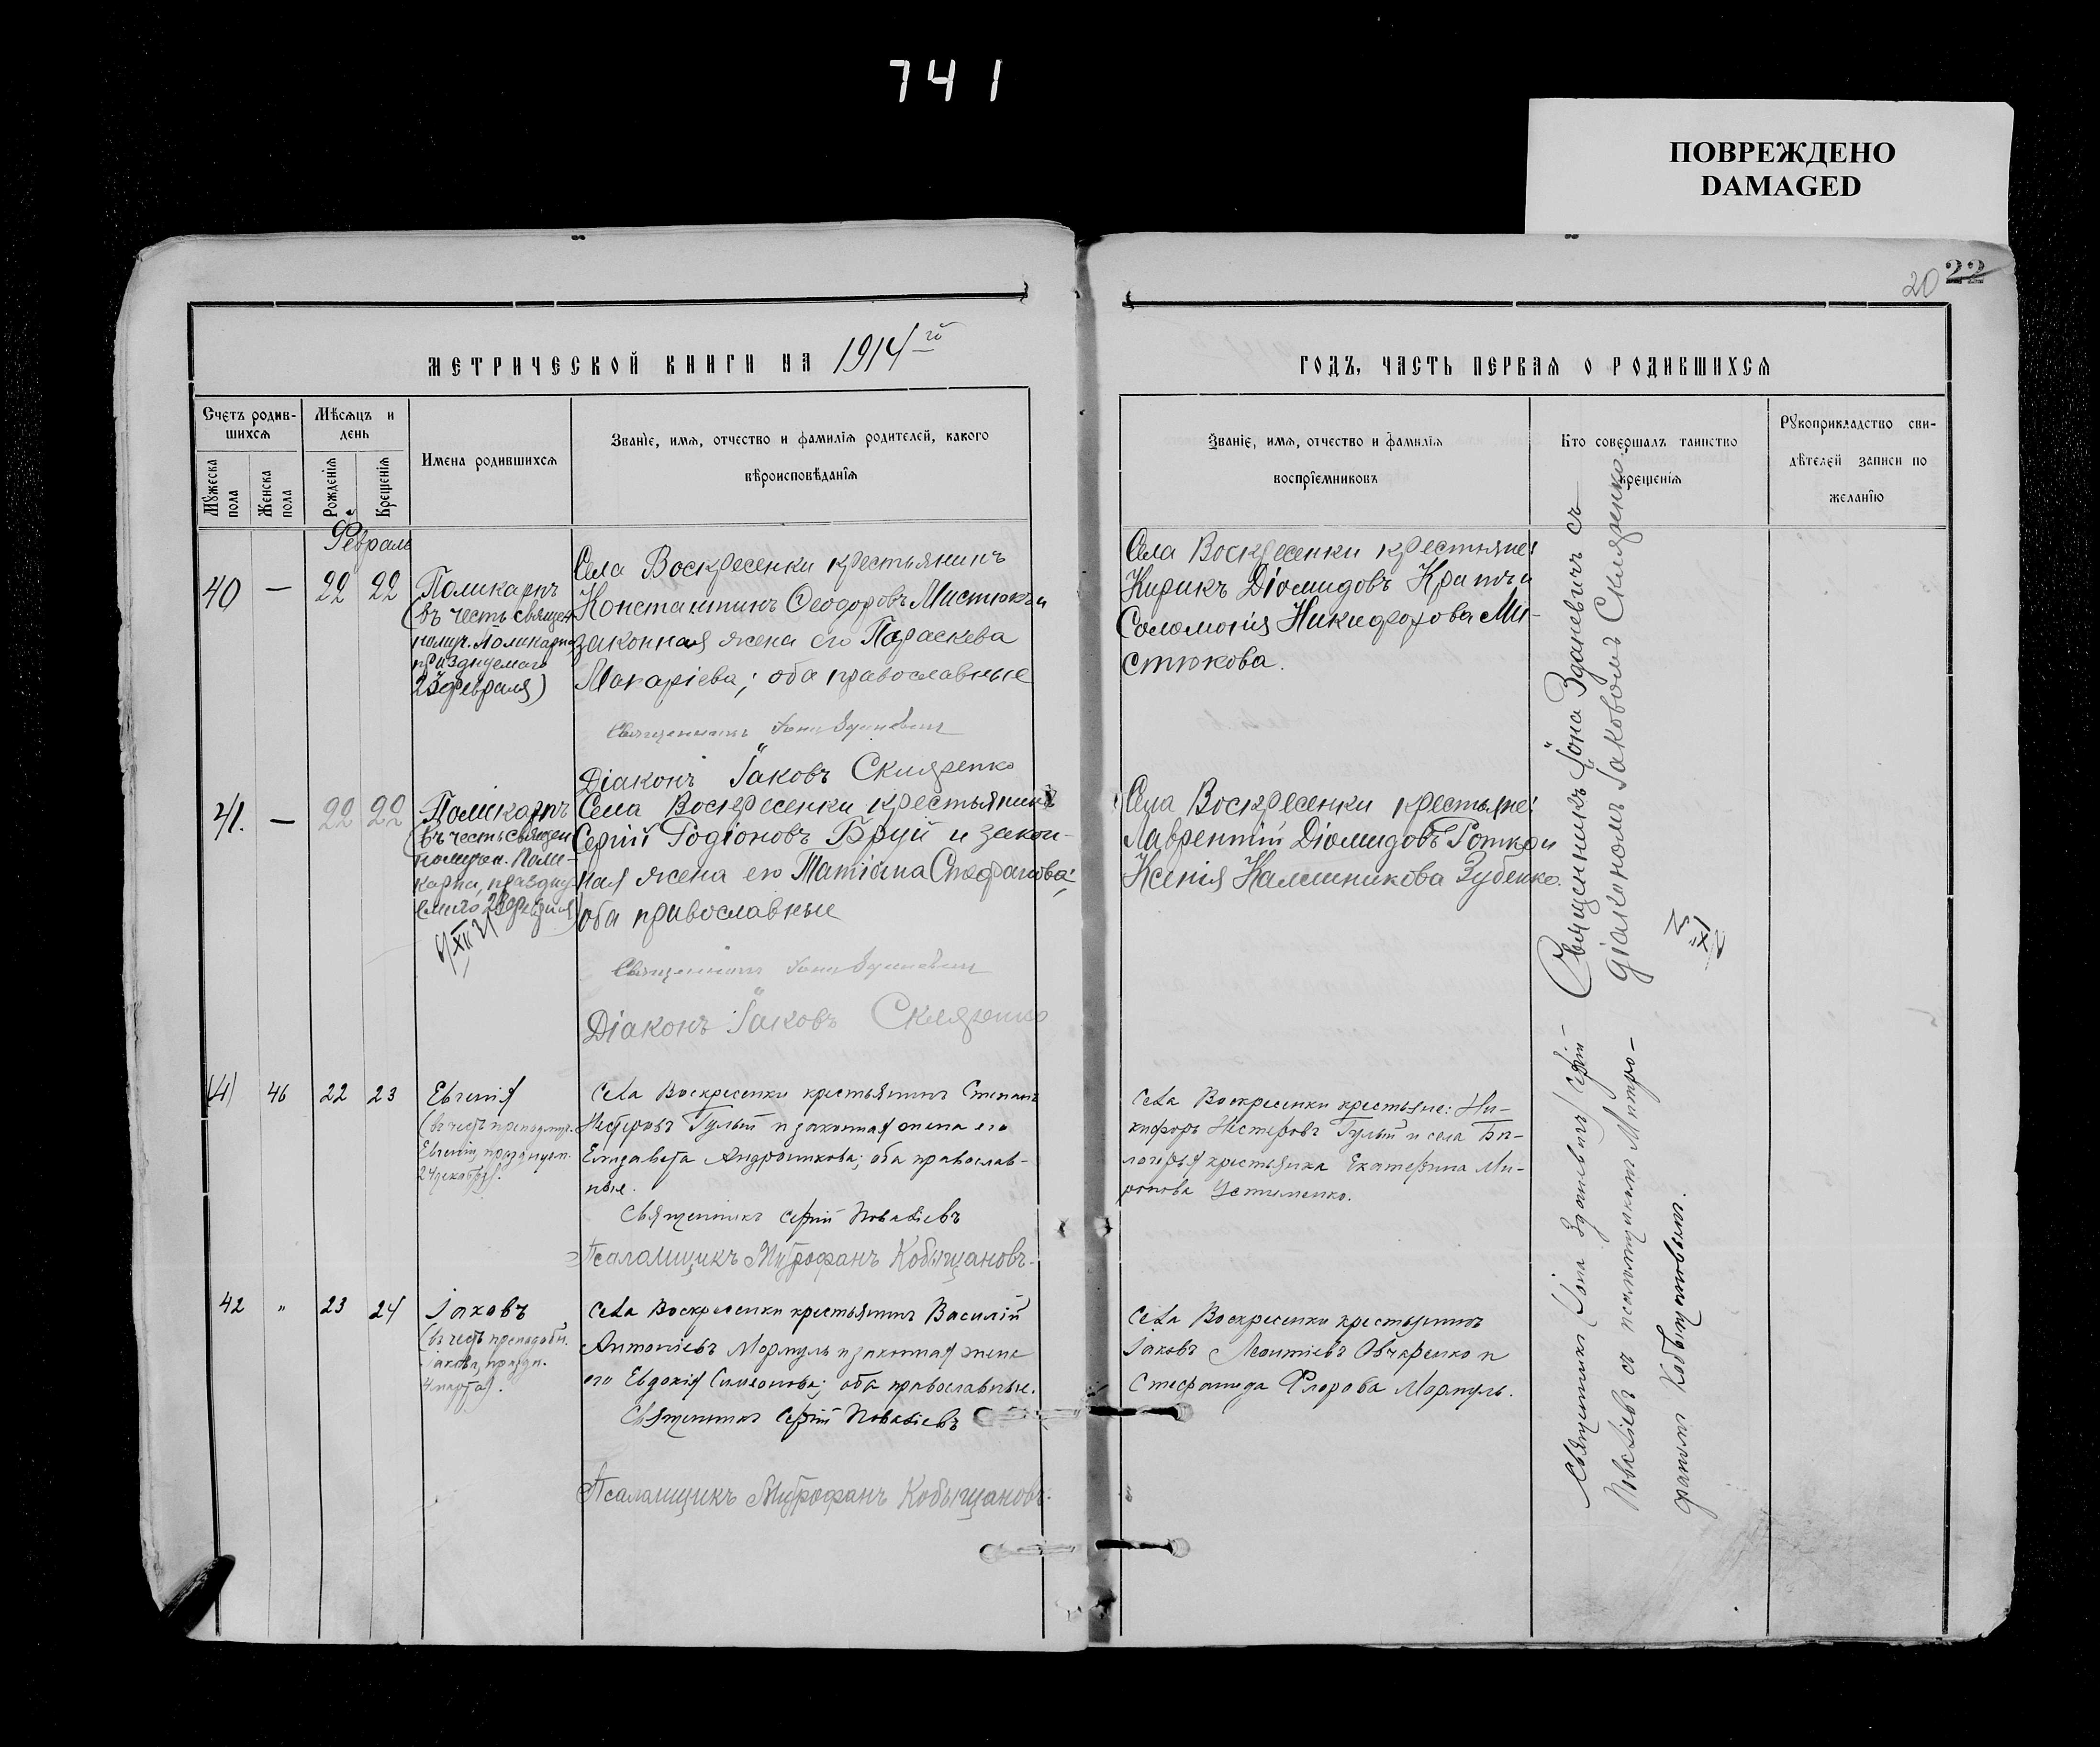 741
ПОВРЕЖДЕНО
DAMAGED
20 22
МЕТРИЧЕСКОЙ КНИГИ НА 1914 го
ГОДЪ, ЧАСТЬ ПЕРВАЯ О РОДИВШИХСЯ
Счетъ родив-
шихся
Мужеска
пола
Женска
пола
Мѣсяцъ и
день
Рожденія
Крещенія
Имена родившихся
Званіе, имя, отчество и фамилія родителей, какого
вѣроисповѣданія
Званіе, имя, отчество и фамилія
воспріемниковъ
Кто совершалъ таинство
крещенія
Рукоприкладство сви-
дѣтелей записи по
желанію
Февраль
40 — 22 22
Поликарпъ
(въ честь священ-
номуч. Поликарпа
празднуемаго
23 февраля)
Села Воскресенки крестьянинъ
Константинъ Ѳеодоровъ Мистюкъ и
законная жена его Параскева
Макаріева; оба православные
Священникъ Іона Зданевичъ
Діаконъ Іаковъ Скляренко
Села Воскресенки крестьяне:
Кирикъ Діомидовъ и
Соломонія Никифорова Ми-
стюкова.
41. — 22 22
Поликарпъ
(въ честь священ-
номучен. Поли-
карпа, праздну-
емаго 23 февраля)
Села Воскресенки крестьянинъ
Сергій Родіоновъ Бруй и закон-
ная жена его Татіана Стефанова;
оба православные
Священникъ Іона Зданевичъ
Діаконъ Іаковъ Скляренко
Села Воскресенки крестьяне:
Лаврентій Діомидовъ и
Ксенія Калинникова Зубенко.
Священникъ Іона Зданевичъ съ
діакономъ Іаковомъ Скляренко.
46 22 23
Евгенія
(въ честь преподмуч.
Евгеніи, празднуем.
24 декабря).
Села Воскресенки крестьянинъ Стефанъ
Несторовъ Гулый и законная жена его
Елизавета Андроникова; оба православ-
ные.
Священникъ Сергій
Псаломщикъ Митрофанъ Кобыщановъ.
Села Воскресенки крестьяне: Ни-
кифоръ Несторовъ Гулый и села Би-
крестьянка Екатерина Ми-
ронова Устименко.
42 " 23 24
Іаковъ
(въ честь преподобн.
Іакова, праздн.
4 марта).
Села Воскресенки крестьянинъ Василій
Антоніевъ Мормуль и законная жена
его Евдокія Симеонова; оба православные.
Священникъ Сергій
Псаломщикъ Митрофанъ Кобыщановъ.
Села Воскресенки крестьянинъ
Іаковъ Леонтіевъ Овчаренко и
Стефанида Флорова Мормуль.
Священники Іона Зданевичъ, Сергій
съ псаломщикомъ Митро-
фаномъ Кобыщановымъ.